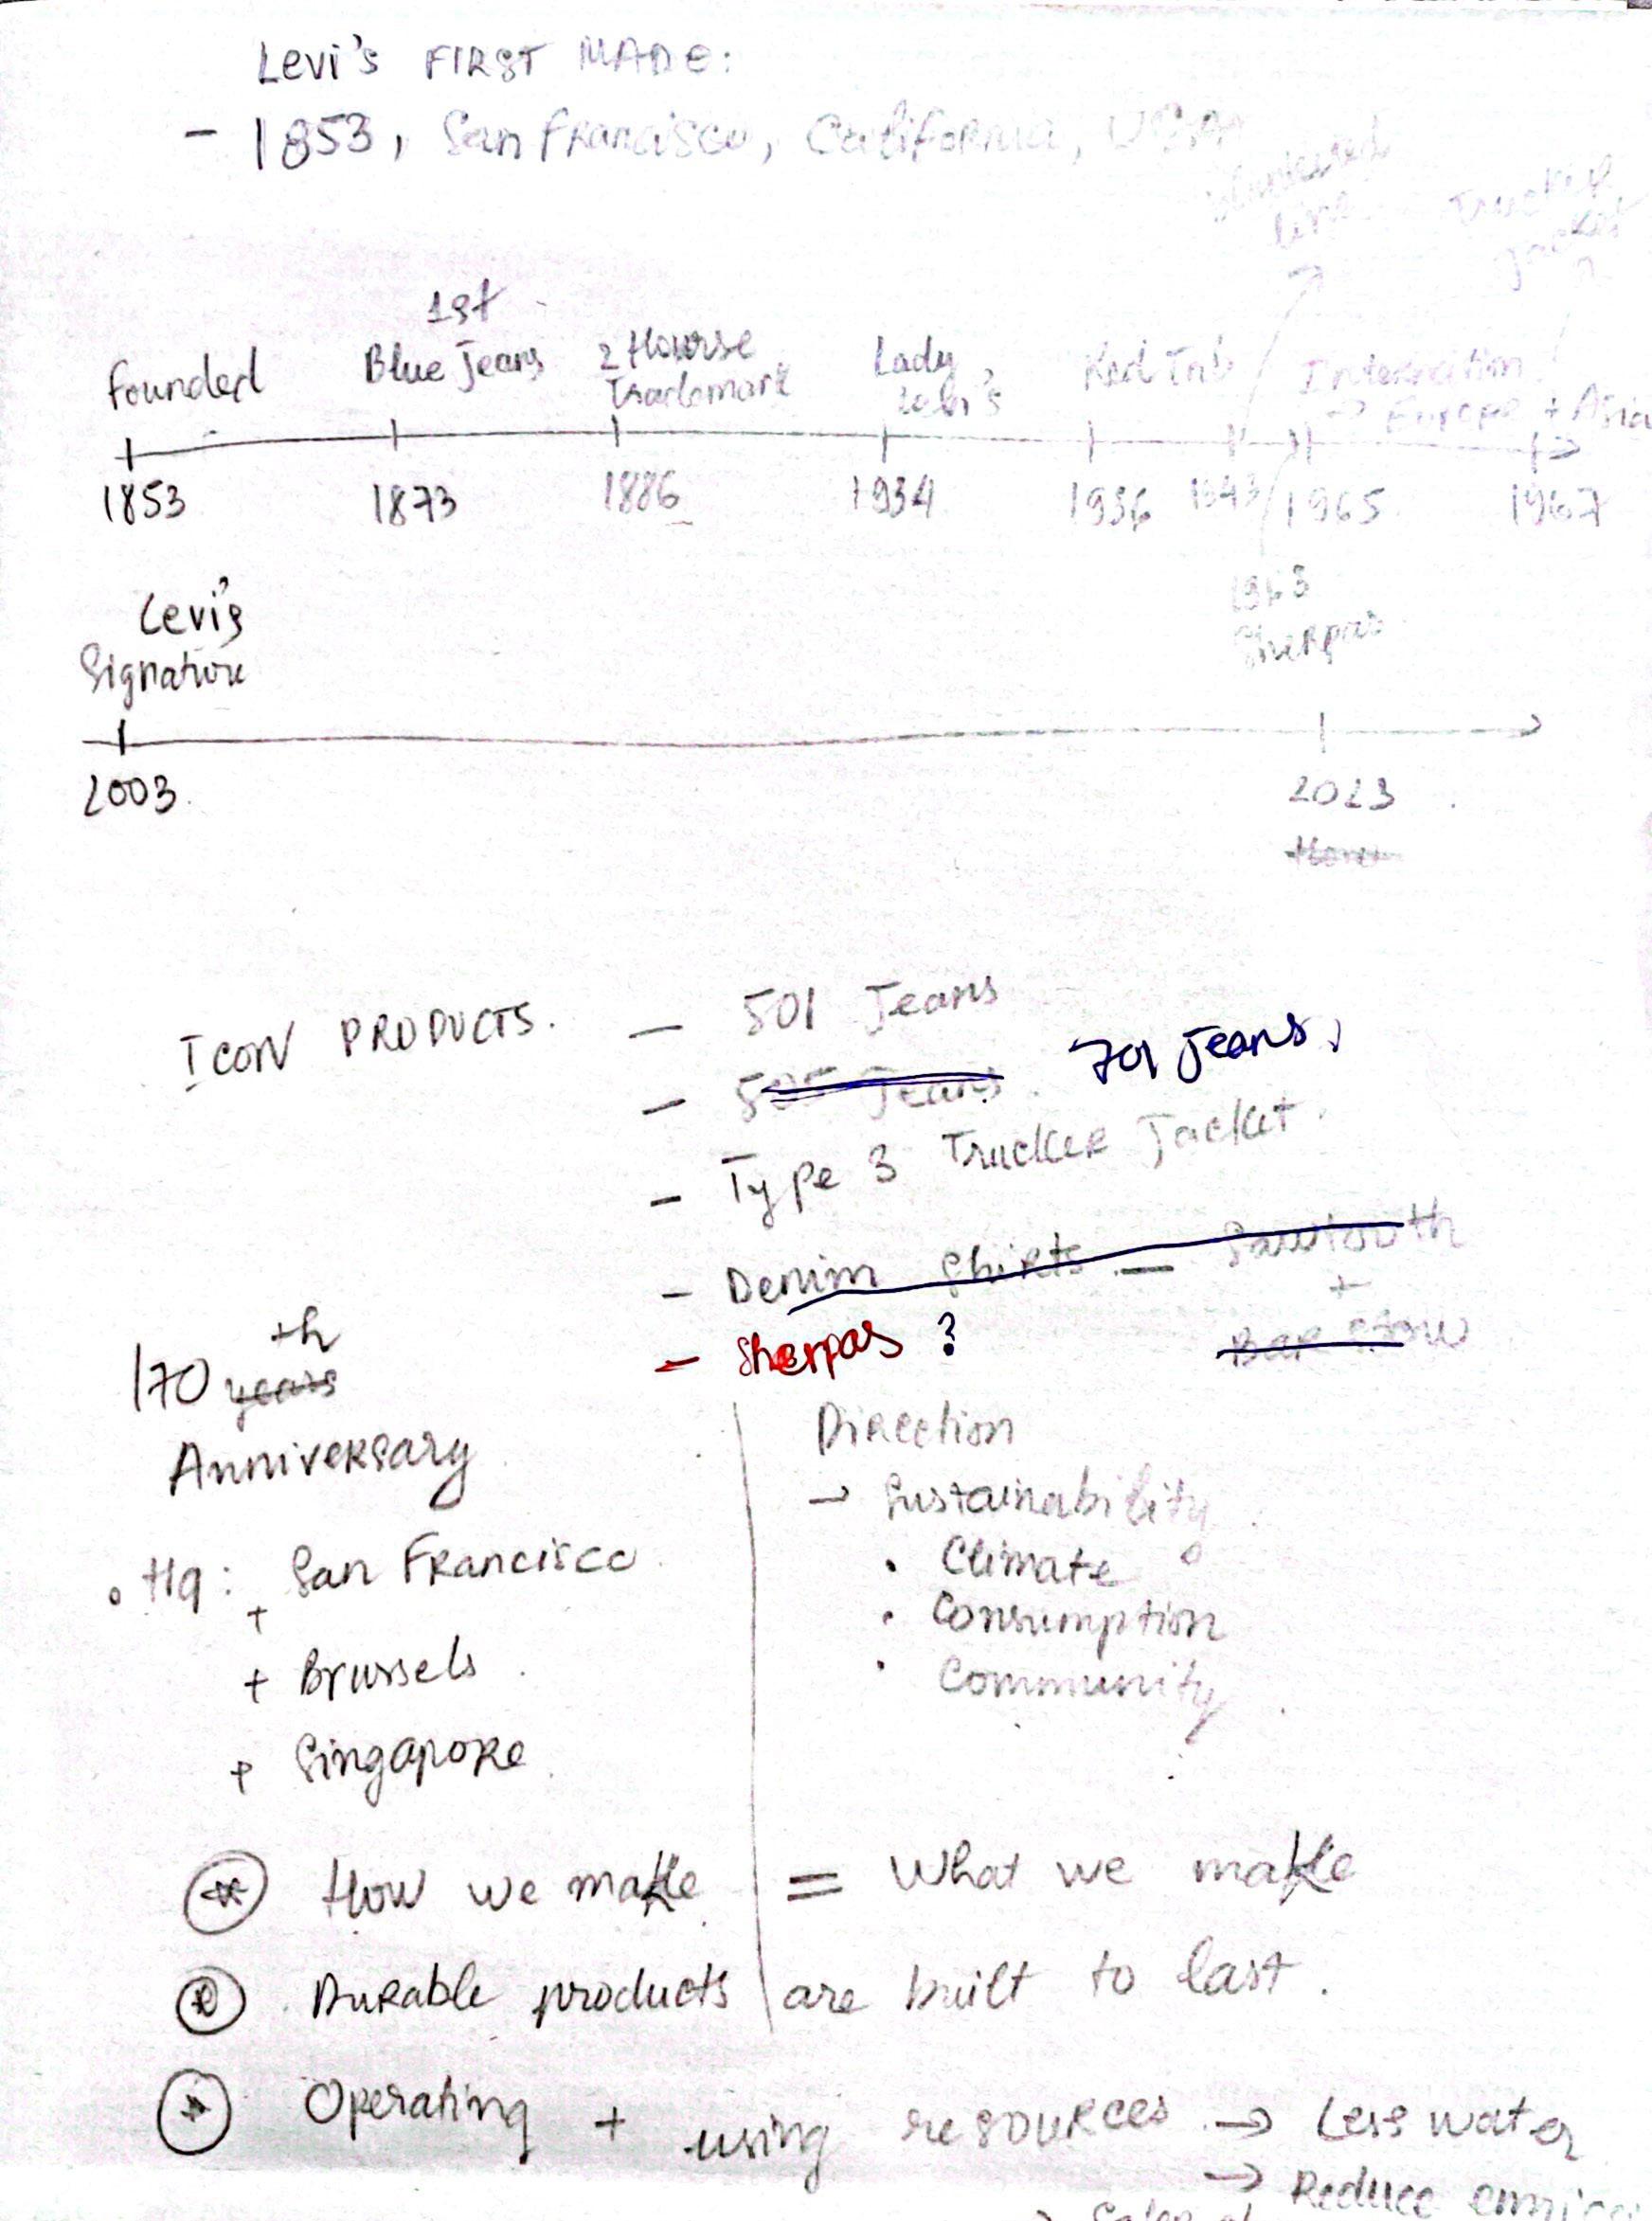 Levi's FIRST MADE:
- 1853, San Francisco, California, USA
line
Trucker
Jacket
1st
Founded Blue Jeans 2 Hourse Lady Red Tab Internation
Trademark Levi's → Europe + Asia
1853 1873 1886 1934 1936 1943 1965 1967
1963
Sherpas
Levi's
Signature
2003 2023
ICON PRODUCTS. - 501 Jeans
- 505 Jeans. 701 Jeans.
- Type 3 Trucker Jacket.
- Denim Shirts - Sawtooth
+
Barstow
- Sherpas ?
170 years th
Anniversary
• Hq: San Francisco
+
+ Brussels
+ Singapore
Direction
→ Sustainability
• Climate
• Consumption
• Community
How we make = What we make
Durable products are built to last.
Operating + using resources → Less water
→ Reduce